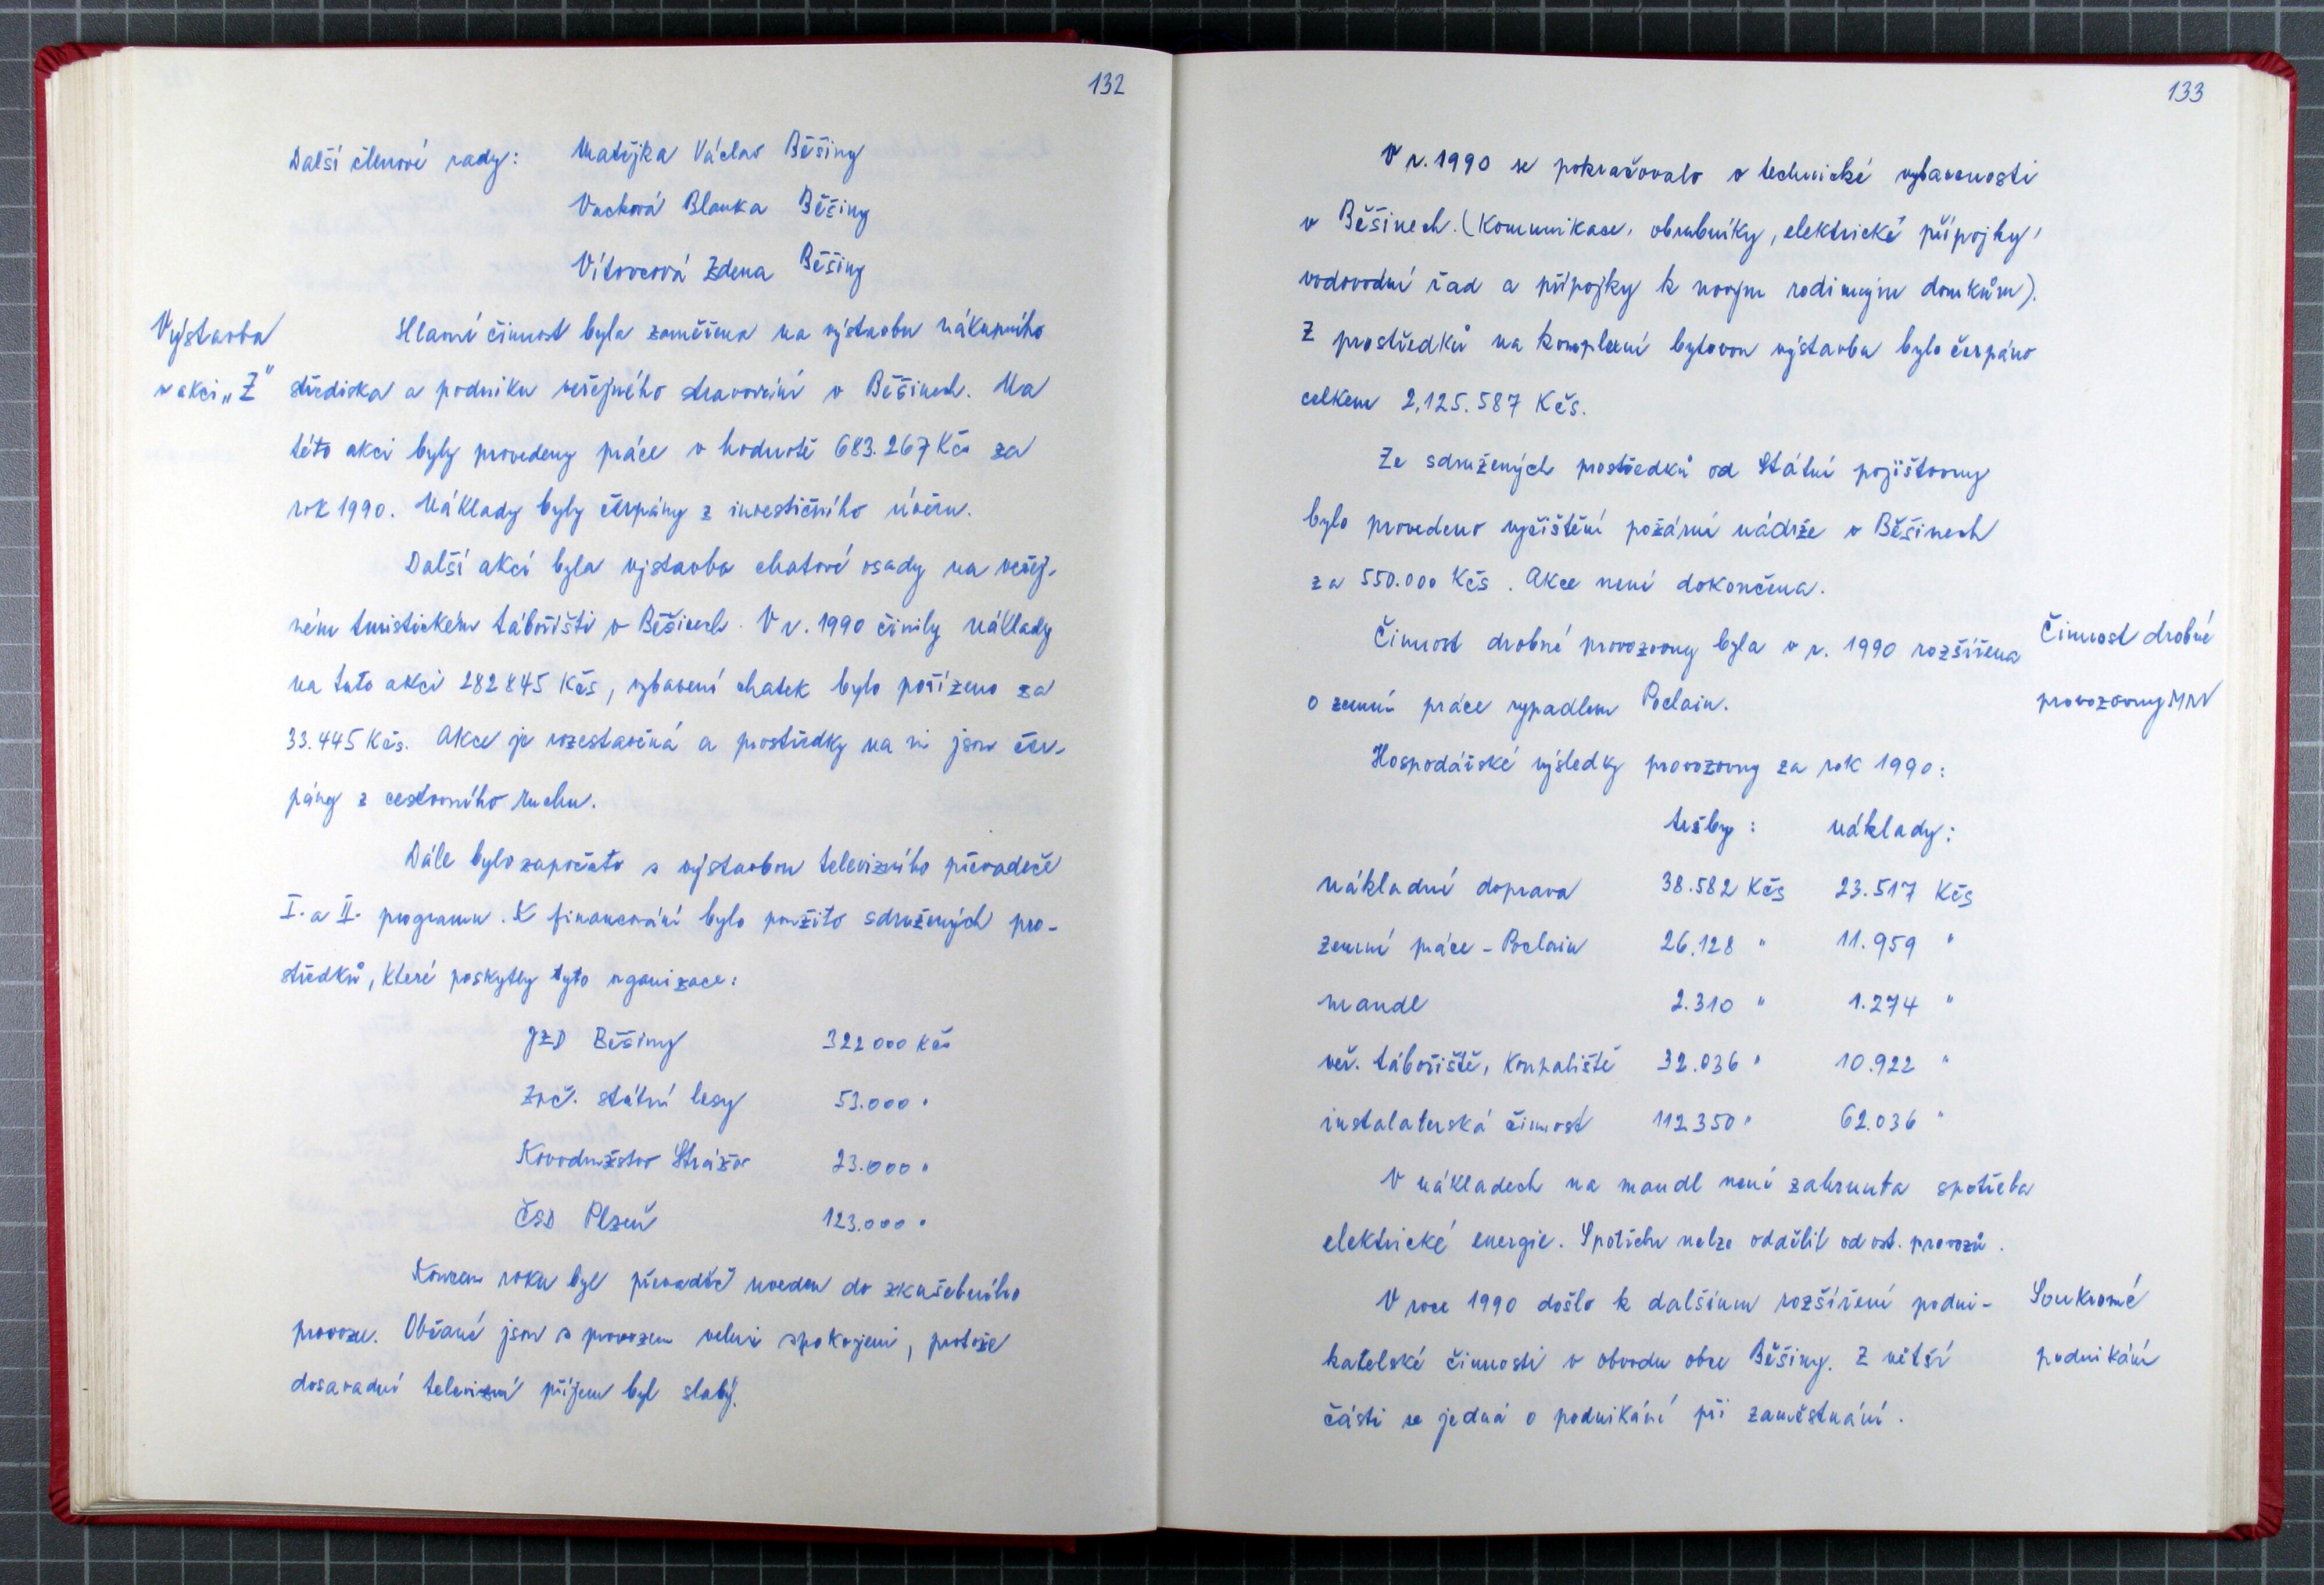 132
Další členové rady: Matějka Václav Běšiny
Vacková Blanka Běšiny
Vítovcová Zdena Běšiny
Výstavba
v akci „Z"
Hlavní činnost byla zaměřena na výstavbu nákupního
střediska a podniku veřejného stravování v Běšinech. Na
této akci byly provedeny práce v hodnotě 683.267 Kčs za
rok 1990. Náklady byly čerpány z investičního úvěru.
Další akcí byla výstavba chatové osady na veřej-
ném turistickém tábořišti v Běšinech. V r. 1990 činily náklady
na tuto akci 282845 Kčs, vybavení chatek bylo pořízeno za
33.445 Kčs. Akce je rozestavěná a prostředky na ni jsou čer-
pány z cestovního ruchu.
Dále bylo započato s výstavbou televizního převaděče
I. a II. programu. K financování bylo použito sdružených pro-
středků, které poskytly tyto organizace:
JZD Běšiny 322000 Kčs
Zpč. státní lesy 53.000 "
Kovodružstvo Strážov 23.000 "
ČSD Plzeň 123.000 "
Koncem roku byl převaděč uveden do zkušebního
provozu. Občané jsou s provozem velmi spokojeni, protože
dosavadní televizní příjem byl slabý.
133
V r. 1990 se pokračovalo v technické vybavenosti
v Běšinech. (Komunikace, obrubníky, elektrické přípojky,
vodovodní řad a přípojky k novým rodinným domkům).
Z prostředků na komplexní bytovou výstavbu bylo čerpáno
celkem 2,125.587 Kčs.
Ze sdružených prostředků od Státní pojišťovny
bylo provedeno vyčištění požární nádrže v Běšinech
za 550.000 Kčs. Akce není dokončena.
Činnost drobné provozovny byla v r. 1990 rozšířena
o zemní práce rypadlem Poclain.
Činnost drobné
provozovny MNV
Hospodářské výsledky provozovny za rok 1990:
tržby: náklady:
nákladní doprava 38.582 Kčs 23.517 Kčs
zemní práce - Poclain 26.128 " 11.959 "
mandl 2.310 " 1.274 "
veř. tábořiště, koupaliště 32.036 " 10.922 "
instalaterská činnost 112.350 " 62.036 "
V nákladech na mandl není zahrnuta spotřeba
elektrické energie. Spotřebu nelze oddělit od ost. provozů.
V roce 1990 došlo k dalšímu rozšíření podni-
katelské činnosti v obvodu obce Běšiny. Z větší
části se jedná o podnikání při zaměstnání.
Soukromé
podnikání